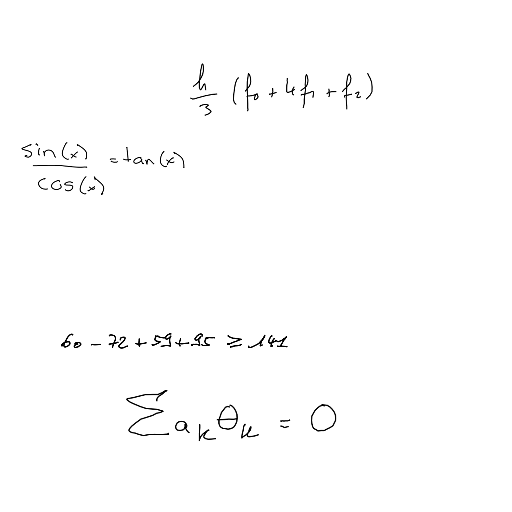 \frac{h}{3} (f_0 + 4f_1 + f_2)
\frac{sin(x)}{cos(x)} = tan(x)
60 - 72 + 59 + 95 ≥ 141
\sum a_k θ_k = 0